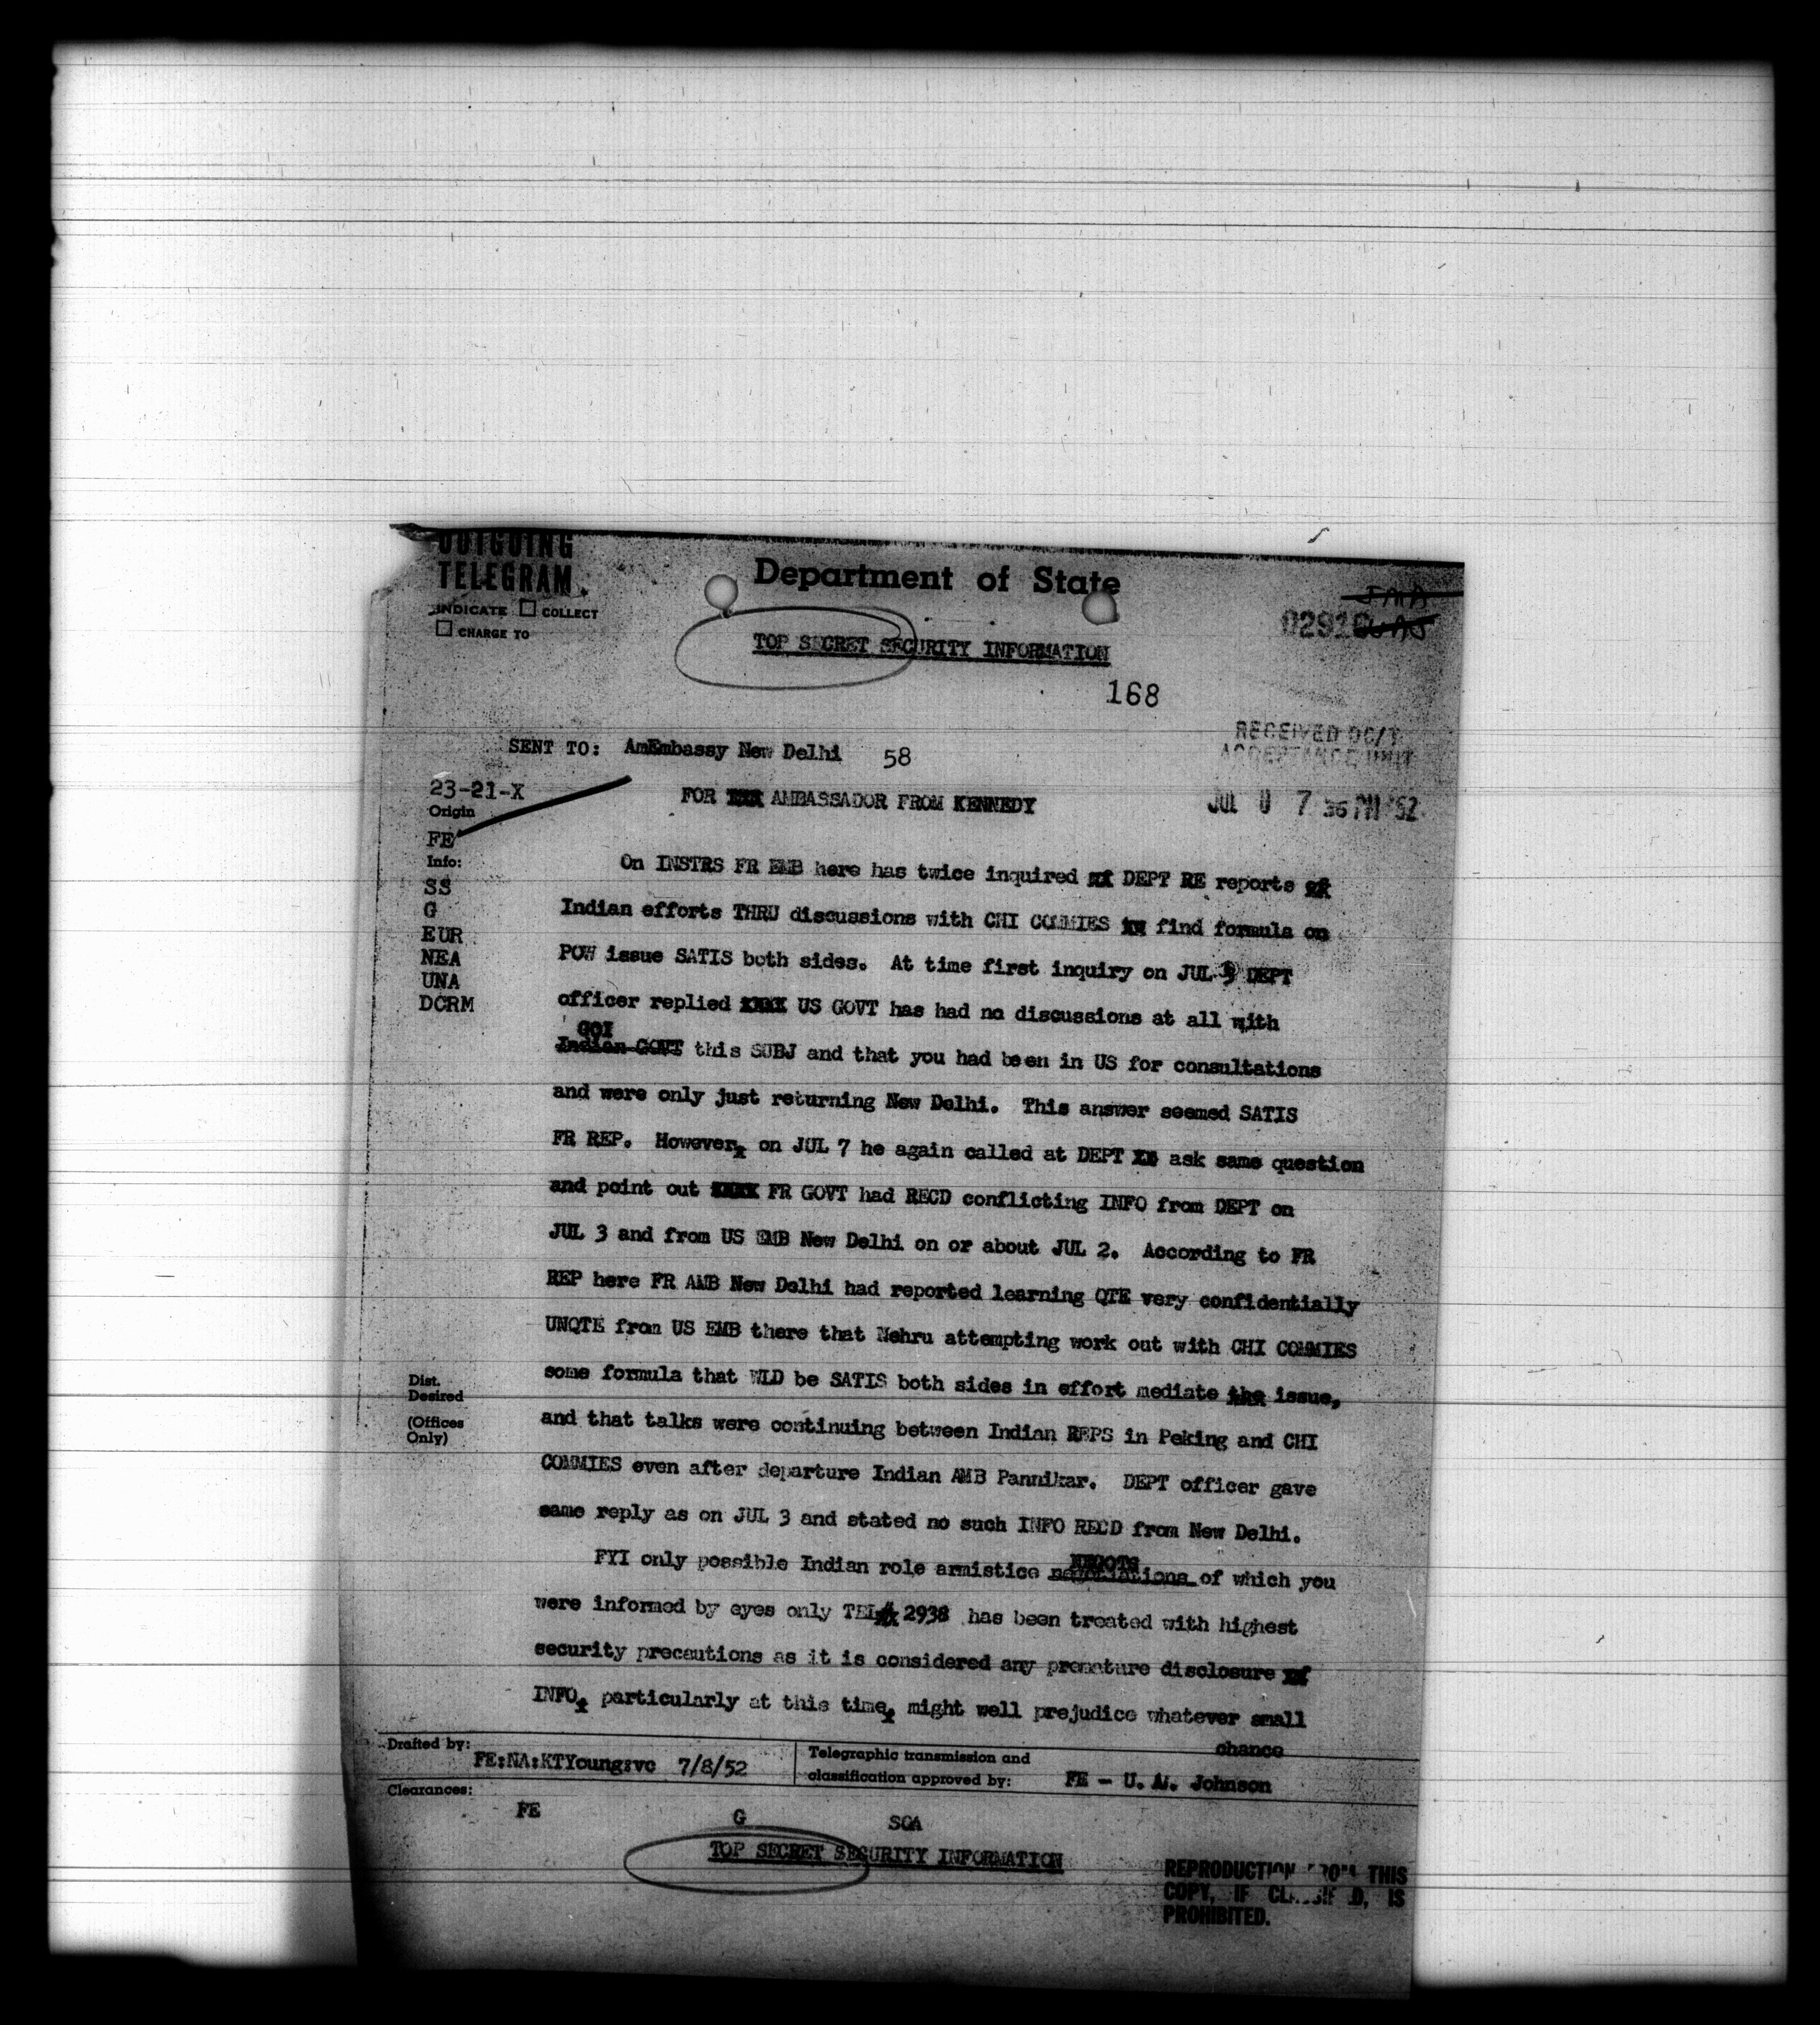 OUTGOING
TELEGRAM
INDICATE ☐ COLLECT
☐ CHARGE TO
Department of State
TOP SECRET SECURITY INFORMATION
168
RECEIVED DC/T
ACCEPTANCE UNIT
SENT TO: AmEmbassy New Delhi 58
23-21-X
Origin
FE
Info:
SS
G
EUR
NEA
UNA
DCRM
FOR AMBASSADOR FROM KENNEDY
On INSTRS FR EMB here has twice inquired of DEPT RE reports of
Indian efforts THRU discussions with CHI COMMIES to find formula on
POW issue SATIS both sides. At time first inquiry on JUL 3 DEPT
officer replied US GOVT has had no discussions at all with
GOI
Indian GOVT this SUBJ and that you had been in US for consultations
and were only just returning New Delhi. This answer seemed SATIS
FR REP. However, on JUL 7 he again called at DEPT to ask same question
and point out FR GOVT had RECD conflicting INFO from DEPT on
JUL 3 and from US EMB New Delhi on or about JUL 2. According to FR
REP here FR AMB New Delhi had reported learning QTE very confidentially
UNQTE from US EMB there that Nehru attempting work out with CHI COMMIES
some formula that WLD be SATIS both sides in effort mediate the issue,
and that talks were continuing between Indian REPS in Peking and CHI
COMMIES even after departure Indian AMB Pannikar. DEPT officer gave
same reply as on JUL 3 and stated no such INFO RECD from New Delhi.
NEGOTS
FYI only possible Indian role armistice negotiations of which you
were informed by eyes only TEL 2938 has been treated with highest
security precautions as it is considered any premature disclosure of
INFO, particularly at this time, might well prejudice whatever small
chance
Dist.
Desired
(Offices
Only)
Drafted by:
FE:NA:KTYoung:vc 7/8/52
Telegraphic transmission and
classification approved by: FE - U. A. Johnson
Clearances:
FE G SOA
TOP SECRET SECURITY INFORMATION
REPRODUCTION FROM THIS
COPY, IF CLASSIFIED, IS
PROHIBITED.